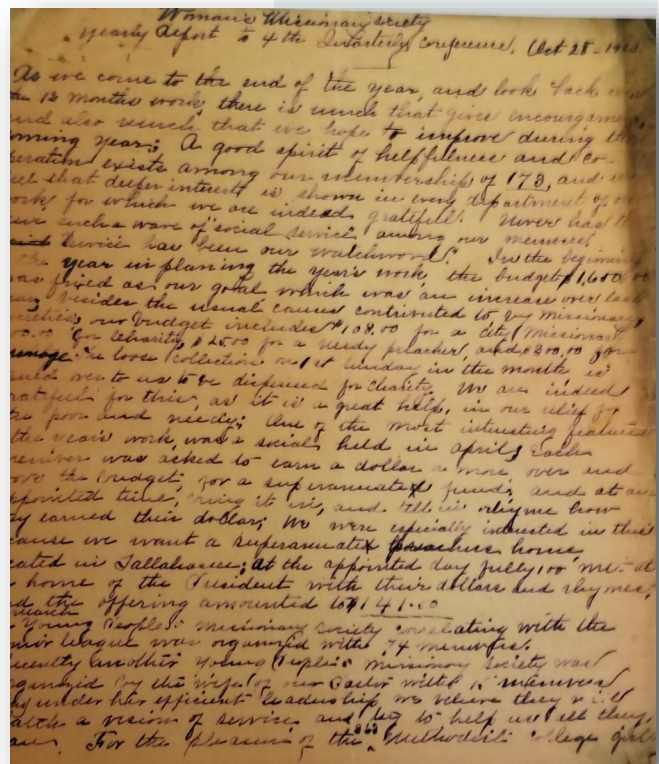 Woman's Missionary Society
yearly Report to 4th Quarterly Conference. Oct 28 -
As we come to the end of the year, and look back
the 12 months work, there is much that gives
and also much that we hope to improve during
year; A good spirit of helpfulness and co
exists among our membership of 173, and
that deeper interest is shown in every department of
for which we are indeed gratefull. Never has
such a wave of social service among our members
Service has been our watchword. In the beginning
the year in planing the year's work, the budget $1,600.00
was fixed as our goal which was an increase over last
besides the usual causes contributed to by missionary
our budget includes $108.00 for a city missionary
for charity, $25.00 for a needy preacher, and $300.00 for
The loose collection on 1st Sunday in the month is
over to us to be dispensed for charity. We are indeed
for this, as it is a great help, in our relief for
the poor and needy; One of the most interesting features
the years work, was a social, held in april; Each
was asked to earn a dollar or more over and
the budget, for a superanuated fund, and at an
time, bring it in, and tell in rhyme how
they earned their dollar; We were especially interested in this
cause we want a superanuated home
in Tallahassee; At the appointed day fully 100 met at
home of the President with their dollars and rhymes,
the offering amounted to $141.00
Young People's Missionary Society with the
league was organized with 74 members.
another Young People's Missionary Society was
by the wife of our Pastor with 15 members
under her efficient leadership we believe they will
a vision of service and to help us all they
For the pleasure of the Methodist College girls